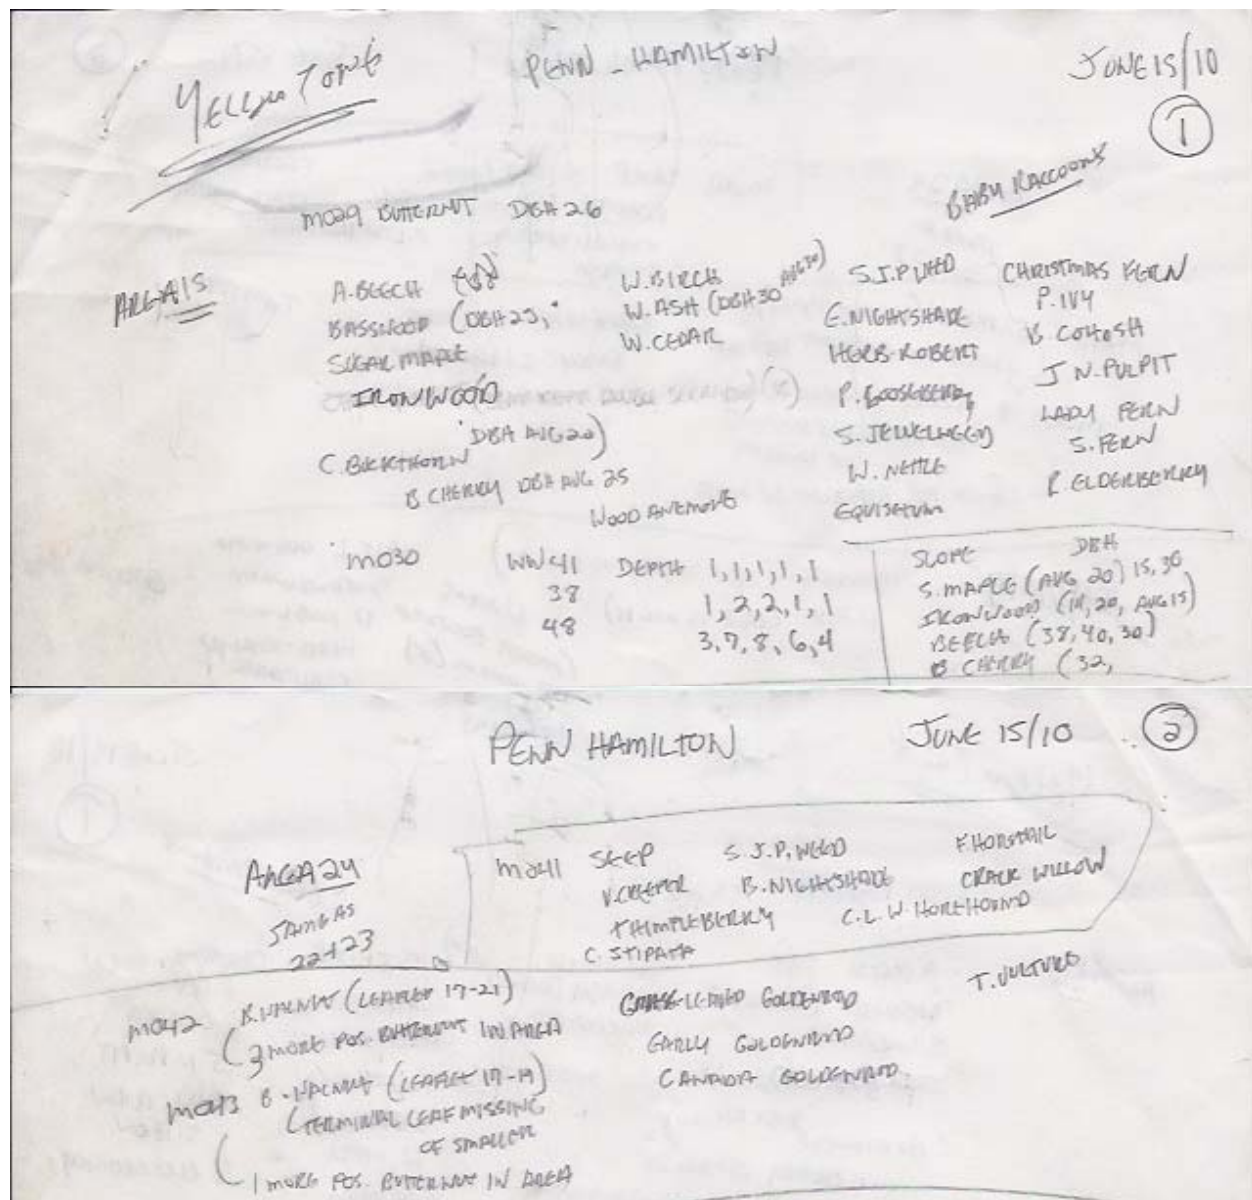 PENN - HAMILTON
JUNE 15/10
1
BABY RACCOONS
MO29 BUTTERNUT DBH 26
AREA 15
A. BEECH
BASSWOOD (DBH 25,
SUGAR MAPLE
IRONWOOD
DBH AVG 20)
C. BUCKTHORN
B CHERRY DBH AVG 25
WOOD ANEMONE
W. BIRCH
W. ASH (DBH 30 AVG 20)
W. CEDAR
S.J.P WEED
E. NIGHTSHADE
HERB-ROBERT
P. GOOSEBERRY
S. JEWELWEED
W. NETTLE
EQUISETUM
CHRISTMAS FERN
P. IVY
B. COHOSH
J N. PULPIT
LADY FERN
S. FERN
R. ELDERBERRY
MO30 WW 41 DEPTH 1, 1, 1, 1, 1
38 1, 2, 2, 1, 1
48 3, 7, 8, 6, 4
SLOPE DBH
S. MAPLE (AVG 20) 15, 30
IRONWOOD (14, 20, AVG 15)
BEECH (38, 40, 30)
B CHERRY (32,
PENN HAMILTON
JUNE 15/10
2
AREA 24
SAME AS
22+23
MO41 SEEP S.J.P. WEED F. HORSETAIL
V. CREEPER B. NIGHTSHADE CRACK WILLOW
THIMBLEBERRY C.L.W. HOREHOUND
C. STIPATA
T. VULTURE
MO42 B. WALNUT (LEAFLET 17-21)
3 MORE POS. BUTTERNUT IN AREA
MO43 B. WALNUT (LEAFLET 17-19)
(TERMINAL LEAF MISSING
OF SMALLER
1 MORE POS. BUTTERNUT IN AREA
GRASS-LEAVED GOLDENROD
EARLY GOLDENROD
CANADA GOLDENROD.